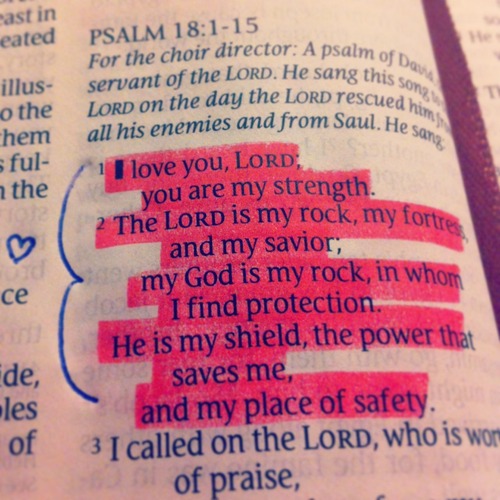 east in
eated
illus-
o the
them
s ful-
n the
ce
ide,
oles
of
PSALM 18:1-15
For the choir director: A psalm of David,
servant of the LORD. He sang this song to
LORD on the day the LORD rescued him
all his enemies and from Saul. He sang:
1 I love you, LORD;
you are my strength.
2 The LORD is my rock, my fortress,
and my savior;
my God is my rock, in whom
I find protection.
He is my shield, the power that
saves me,
and my place of safety.
3 I called on the LORD, who is wor
of praise,
He s